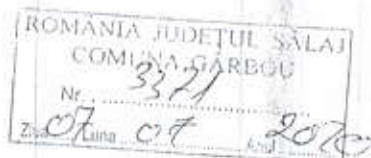 ROMÂNIA JUDEȚUL SĂLAJ
COMUNA GÂRBOU
Nr. 3371
Ziua 07 Luna 07 Anul 2010